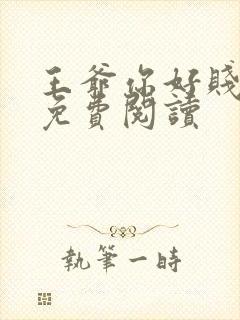 王爺你好賤
免費閱讀
執筆一時